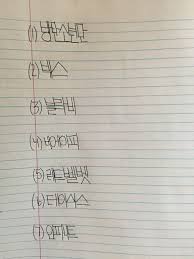 (1) 방탄소년단
(2) 빅스
(3) 블락비
(4) 비에이피
(5) 레드벨벳
(6) 데이식스
(7) 인피니트